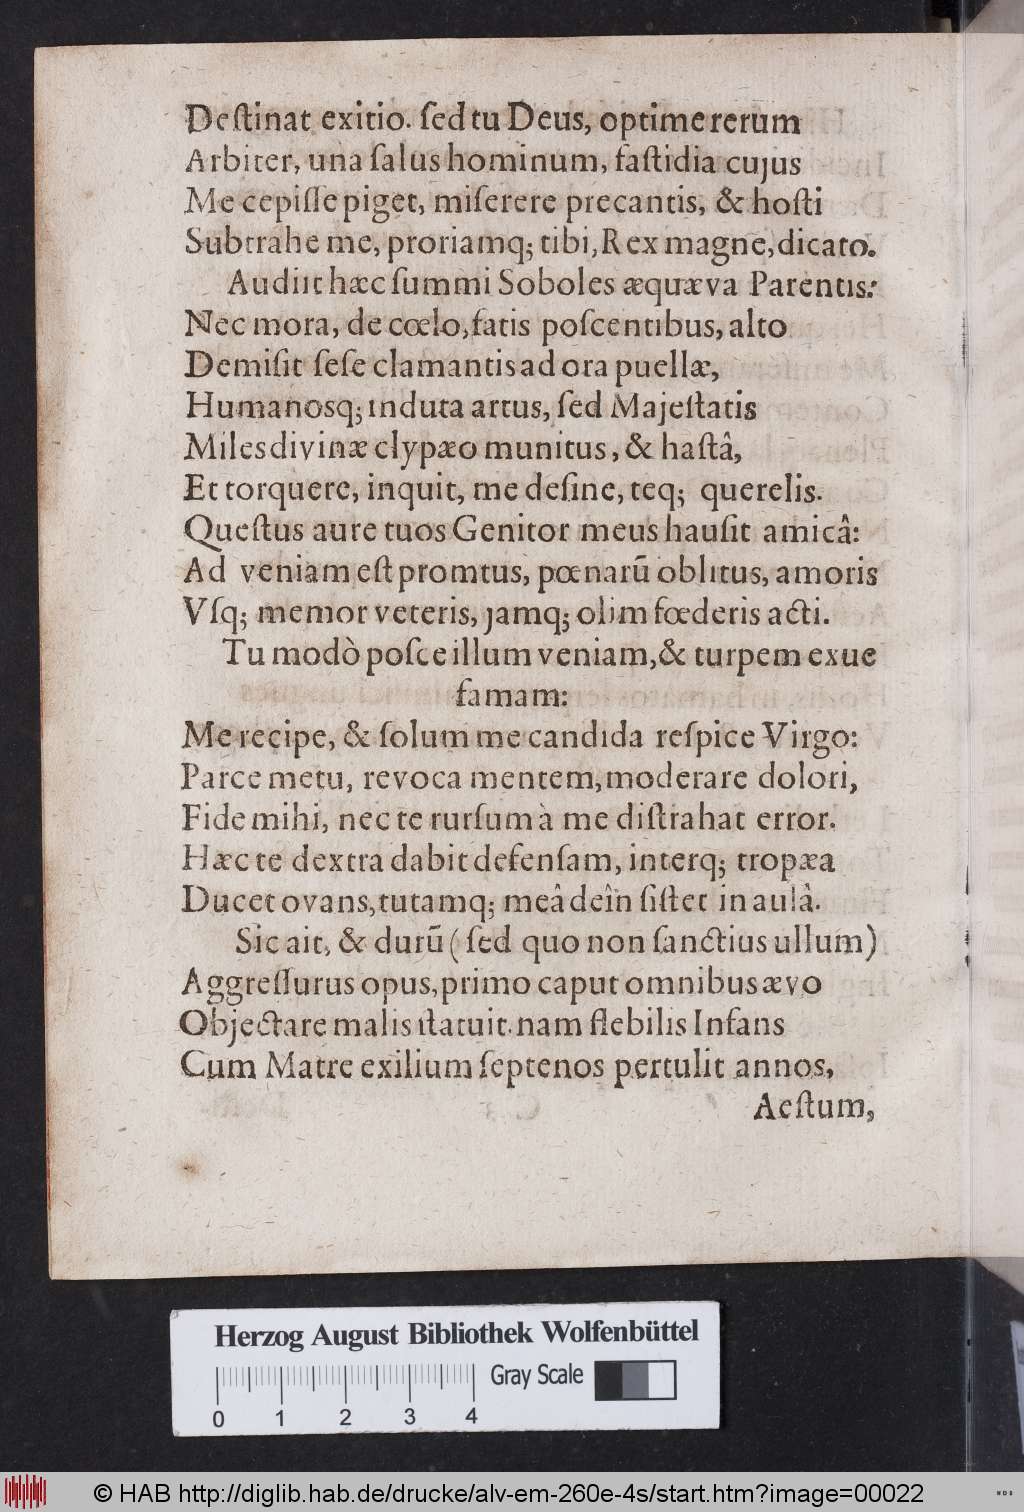 Deſtinat exitio. ſed tu Deus, optime rerum
Arbiter, una ſalus hominum, faſtidia cujus
Me cepiſſe piget, miſerere precantis, & hoſti
Subtrahe me, proriamq; tibi, Rex magne, dicato.
Audiit hæc ſummi Soboles æquæva Parentis:
Nec mora, de cœlo, fatis poſcentibus, alto
Demiſit ſeſe clamantis ad ora puellæ,
Humanosq; induta artus, ſed Majeſtatis
Miles divinæ clypæo munitus, & haſtâ,
Et torquere, inquit, me deſine, teq; querelis.
Queſtus aure tuos Genitor meus hauſit amicâ:
Ad veniam eſt promtus, pœnarū oblitus, amoris
Vſq; memor veteris, jamq; olim fœderis acti.
Tu modò poſce illum veniam, & turpem exue
famam:
Me recipe, & ſolum me candida reſpice Virgo:
Parce metu, revoca mentem, moderare dolori,
Fide mihi, nec te rurſum à me diſtrahat error.
Hæc te dextra dabit defenſam, interq; tropæa
Ducet ovans, tutamq; meâ deîn ſiſtet in aulâ.
Sic ait, & durū (ſed quo non ſanctius ullum)
Aggreſſurus opus, primo caput omnibus ævo
Objectare malis ſtatuit. nam flebilis Infans
Cum Matre exilium ſeptenos pertulit annos,
Aeſtum,
Herzog August Bibliothek Wolfenbüttel
Gray Scale
0 1 2 3 4
© HAB http://diglib.hab.de/drucke/alv-em-260e-4s/start.htm?image=00022